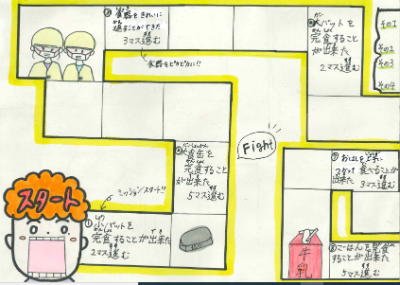 食器をきれいに
返すことができた
3マス進む
食器をピカピカに!!
大バットを
完食すること
が出来た
2マス進む
その1
その2
その3
その4
食缶を
完食すること
が出来た
5マス進む
Fight
おはしを上手に
食べることが
出来た
3マス進む
スタート
ミッションスタート!!
小バットを
完食することが出来た
2マス進む
牛乳
ごはんを完食
することが出来た
5マス進む